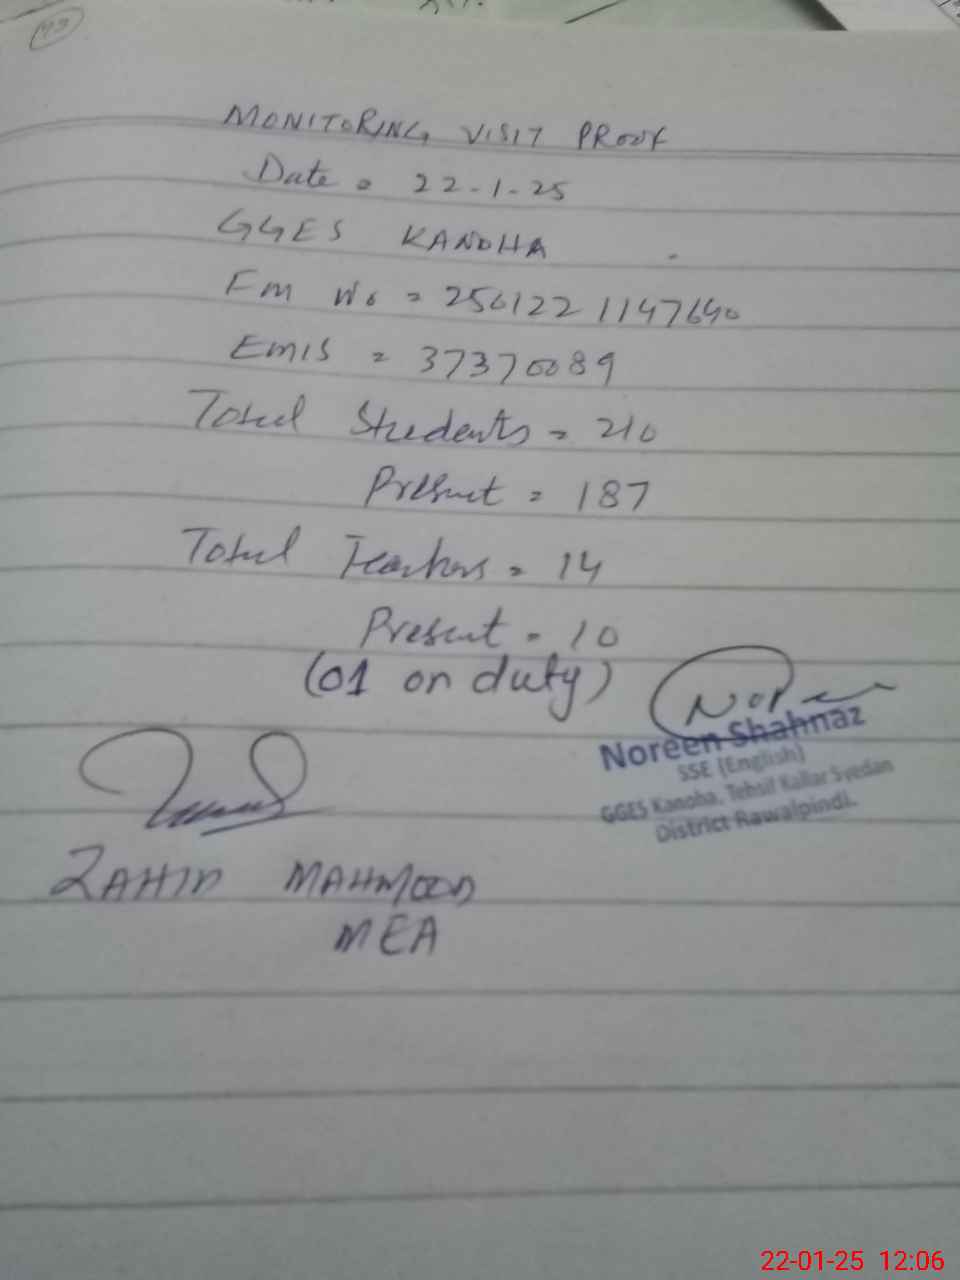 49
MONITORING VISIT PROOF
Date = 22-1-25
GGES KANOHA
Fm No = 2501221147640
Emis = 37370089
Total Students = 210
Present = 187
Total Teachers = 14
Present = 10
(01 on duty)
Noreen Shahnaz
SSE (English)
GGES Kanoha, Tehsil Kallar Syedan
District Rawalpindi.
ZAHID MAHMOOD
MEA
22-01-25 12:06